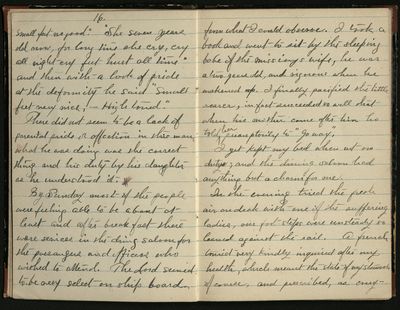 16.
small feet no good." "She seven years
old now, for long time she cry, cry
all night cry feet hurt all time"
and then with a look of pride
at the deformity he said "Small
feet very nice! - High toned."
There did not seem to be a lack of
parental pride or affection in this man,
what he was doing was the correct
thing and his duty by his daughter
as he understood it.
By Sunday most of the people
were feeling able to be about at
least and after breakfast there
were services in the dining saloon for
the passengers and officers who
wished to attend. The Lord seemed
to be very select on ship board,
from what I could observe. I took a
book and went to sit by the sleeping
babe of the missionary's wife, he was
a two year old, and vigorous when he
wakened up. I finally pacified the little
roarer, in fact succeeded so well that
when his mother came after him he
told her peremptorily to "Go away".
I yet kept my bed when not on
duty, and the dining saloon had
anything but a charm for me.
In the evening tried the fresh
air on deck with one of the suffering
ladies, our foot steps were unsteady so
leaned against the rail. A French
tourist very kindly inquired after my
health, which meant the state of my stomach
of course, and prescribed, as every-